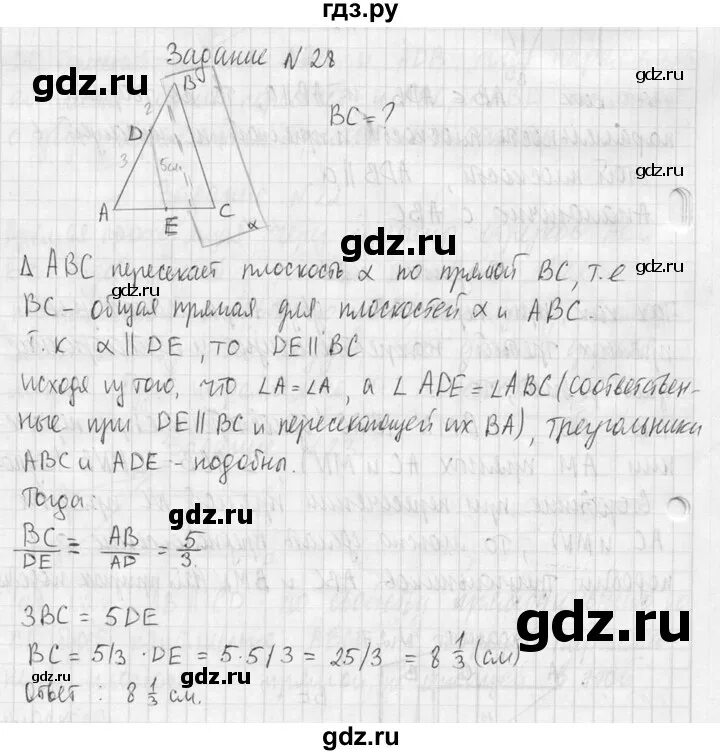 гдз.ру
Задание N 28
B
2
D
3
5см
A
E
C
α
BC = ?
Δ ABC пересекает плоскость α по прямой BC, т.е
BC - общая прямая для плоскостей α и ABC.
Т.к α || DE, то DE || BC
исходя из того, что ∠A = ∠A, а ∠ ADE = ∠ABC (соответствен-
ные при DE || BC и пересекающей их BA), треугольники
ABC и ADE - подобны.
Тогда
BC/DE = AB/AD = 5/3
3BC = 5DE
BC = 5/3 · DE = 5·5/3 = 25/3 = 8 1/3 (см)
Ответ : 8 1/3 см.
gdz.ru
gdz.ru
gdz.ru
gdz.ru
gdz.ru
gdz.ru
gdz.ru
gdz.ru
gdz.ru
gdz.ru
gdz.ru
gdz.ru
gdz.ru